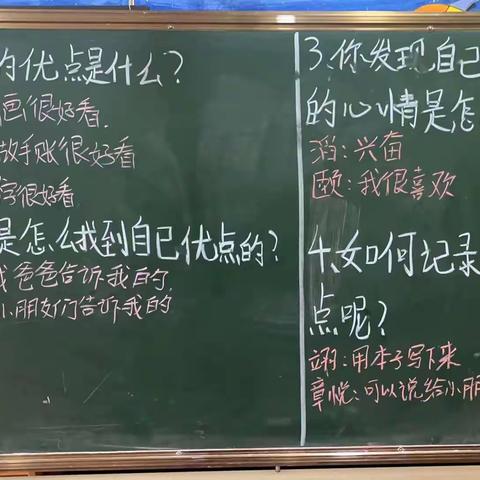 的优点是什么?
画很好看.
做手账很好看
写很好看.
是怎么找到自己优点的?
爸爸告诉我的.
小朋友们告诉我的
3.你发现自己
的心情是怎
滔:兴奋
颐:我很喜欢
4.如何记录
点呢?
翊:用本子写下来
章悦:可以说给小朋